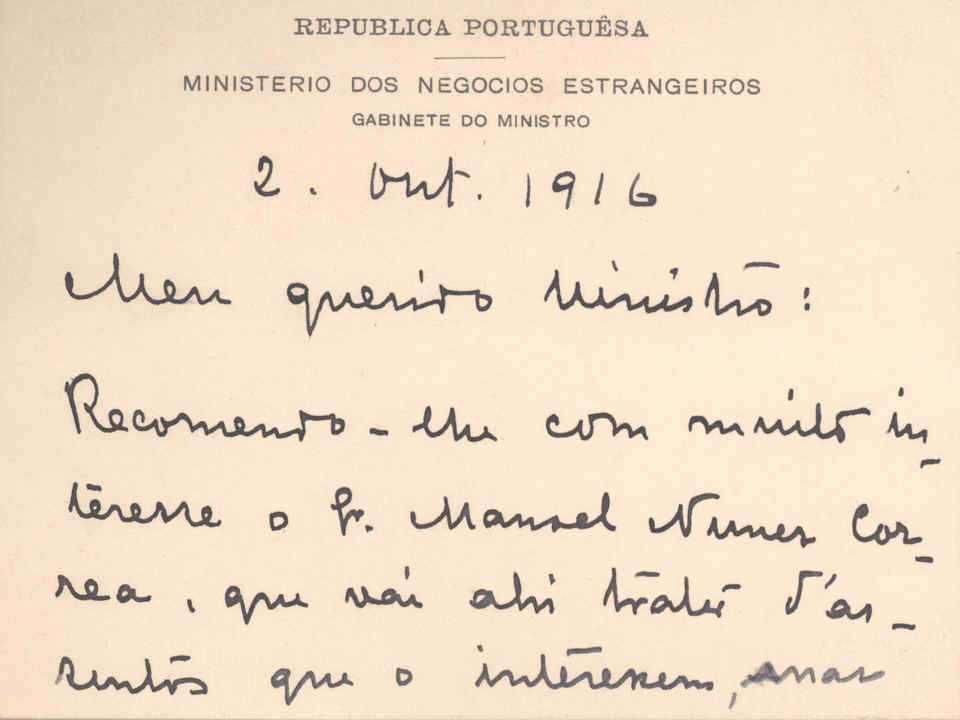 REPUBLICA PORTUGUÊSA
MINISTERIO DOS NEGOCIOS ESTRANGEIROS
GABINETE DO MINISTRO
2. Out. 1916
Meu querido Ministro:
Recomendo-lhe com muito in-
teresse o Sr. Manoel Nunes Cor-
rea, que vai ahi tratar d'as-
suntos que o interessem, mas